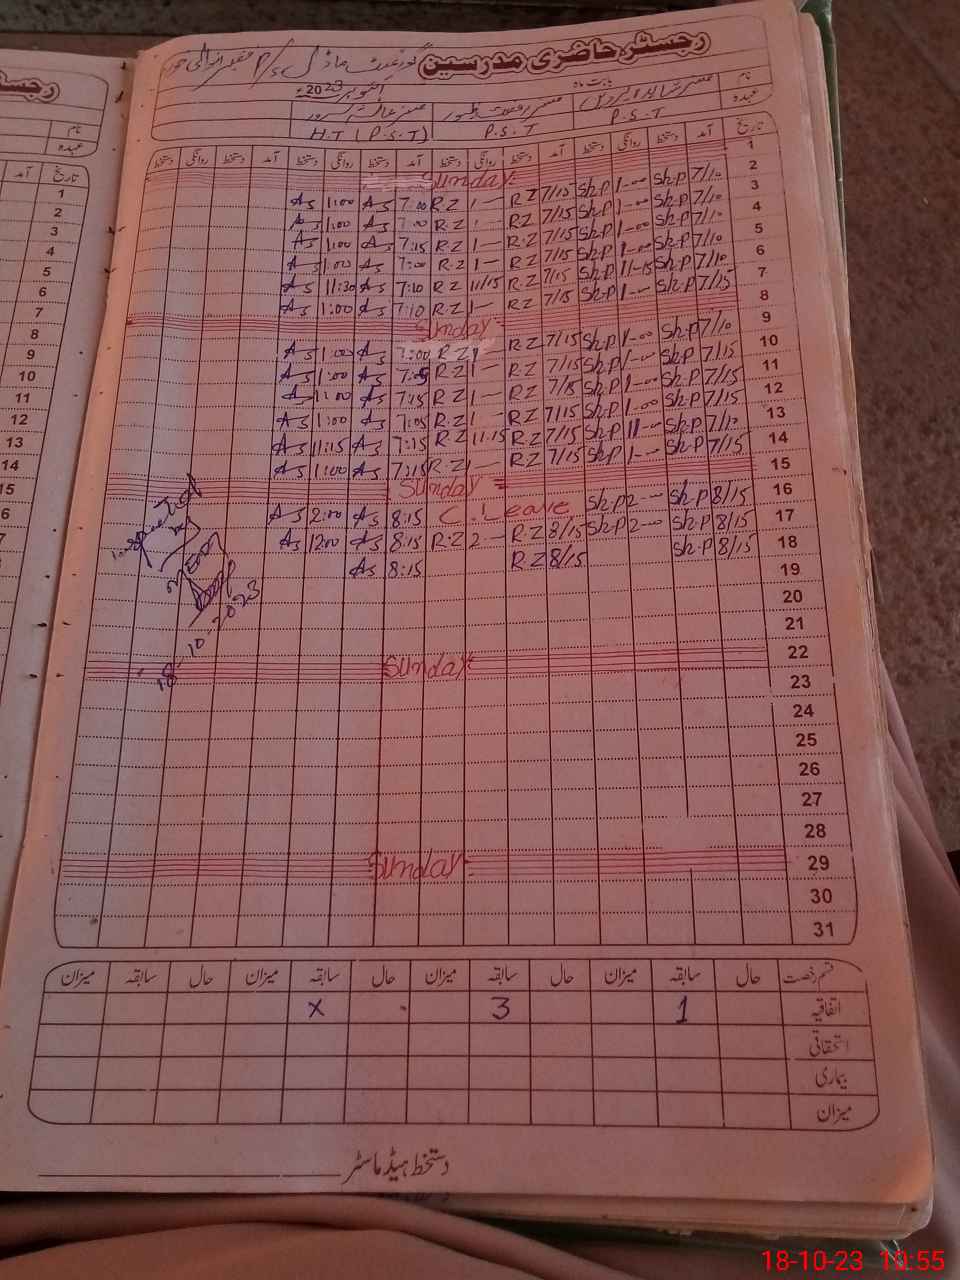 رجسٹر حاضری مدرسین
گورنمنٹ ماڈل P/S
نام
بابت ماہ
اکتوبر 2023ء
عہدہ
P.S.T
P.S.T
H.T (P.S.T)
تاریخ آمد دستخط روانگی دستخط آمد دستخط روانگی دستخط آمد دستخط روانگی دستخط آمد دستخط روانگی دستخط
1 Sunday
2 7/10 Sh.P 1-00 Sh.P 7/15 R.Z 1— R.Z 7:00 AS 1:00 AS
3 7/10 Sh.P 1-00 Sh.P 7/15 R.Z 1— R.Z 7:00 AS 1:00 AS
4 7/10 Sh.P 1-00 Sh.P 7/15 R.Z 1— R.Z 7:15 AS 1:00 AS
5 7/10 Sh.P 1-00 Sh.P 7/15 R.Z 1— R.Z 7:00 AS 1:00 AS
6 7/10 Sh.P 11-15 Sh.P 7/15 R.Z 11/15 R.Z 7:10 AS 11:30 AS
7 7/15 Sh.P 1-00 Sh.P 7/15 R.Z 1— R.Z 7:10 AS 1:00 AS
8 Sunday
9 7/10 Sh.P 1-00 Sh.P 7/15 R.Z 1— R.Z 7:00 AS 1:00 AS
10 7/15 Sh.P 1-00 Sh.P 7/15 R.Z 1— R.Z 7:05 AS 1:00 AS
11 7/15 Sh.P 1-00 Sh.P 7/15 R.Z 1— R.Z 7:15 AS 1:00 AS
12 7/15 Sh.P 1-00 Sh.P 7/15 R.Z 1— R.Z 7:05 AS 1:00 AS
13 7/10 Sh.P 11— Sh.P 7/15 R.Z 11:15 R.Z 7:15 AS 11:15 AS
14 7/15 Sh.P 1-00 Sh.P 7/15 R.Z 1— R.Z 7:15 AS 1:00 AS
15 Sunday
16 8/15 Sh.P 2-00 Sh.P C.Leave 8:15 AS 2:00 AS
17 8/15 Sh.P 2-00 Sh.P 8/15 R.Z 2— R.Z 8:15 AS 1200 AS
18 8/15 Sh.P 8/15 R.Z 8:15 AS
19
20
21
22 Sunday
23
24
25
26
27
28
29 Sunday
30
31
18-10-2023
قسم رخصت حال سابقہ میزان حال سابقہ میزان حال سابقہ میزان حال سابقہ میزان
اتفاقیہ 1 3 x
استحقاقی
بیماری
میزان
دستخط ہیڈ ماسٹر
رجسٹر
نام
عہدہ
تاریخ آمد
1
2
3
4
5
6
7
8
9
10
11
12
13
14
15
18-10-23 10:55